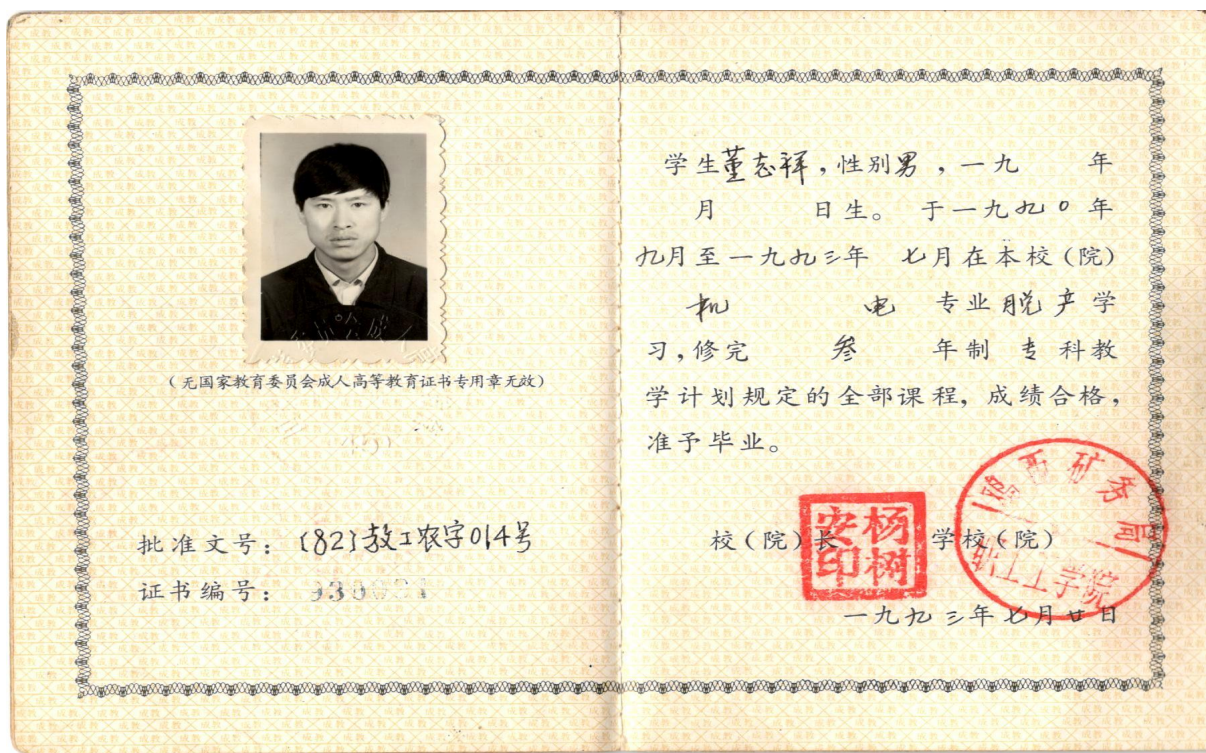 (无国家教育委员会成人高等教育证书专用章无效)
批准文号：(82)教工农字014号
证书编号：930001
学生董志祥,性别男,一九 年
月 日生。于一九九0年
九月至一九九三年 七月在本校(院)
机 电 专业脱产学
习,修完 叁 年制 专科教
学计划规定的全部课程,成绩合格,
准予毕业。
校(院)长 学校(院)
杨树安印
鸡西矿务局
职工工学院
一九九三年七月廿日